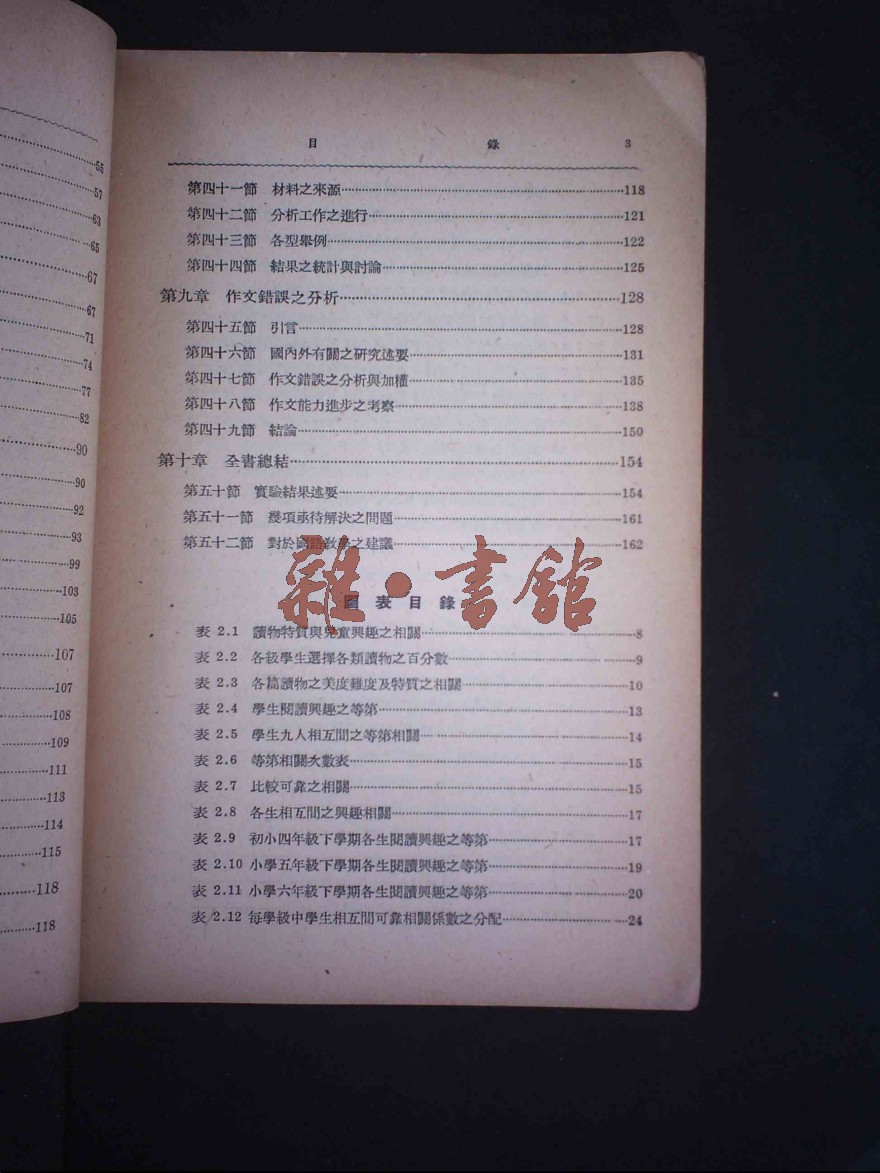 55
57
63
65
67
67
71
74
77
82
90
90
92
93
99
103
105
107
107
108
109
111
113
114
115
118
118
目 錄 3
第四十一節 材料之來源 118
第四十二節 分析工作之進行 121
第四十三節 各型舉例 122
第四十四節 結果之統計與討論 125
第九章 作文錯誤之分析 128
第四十五節 引言 128
第四十六節 國內外有關之研究述要 131
第四十七節 作文錯誤之分析與加權 135
第四十八節 作文能力進步之考察 138
第四十九節 結論 150
第十章 全書總結 154
第五十節 實驗結果述要 154
第五十一節 幾項亟待解決之問題 161
第五十二節 對於國語教學之建議 162
雜·書館
圖表目錄
表 2.1 讀物特質與兒童興趣之相關 8
表 2.2 各級學生選擇各類讀物之百分數 9
表 2.3 各篇讀物之美度難度及特質之相關 10
表 2.4 學生閱讀興趣之等第 13
表 2.5 學生九人相互間之等第相關 14
表 2.6 等第相關次數表 15
表 2.7 比較可靠之相關 15
表 2.8 各生相互間之興趣相關 17
表 2.9 初小四年級下學期各生閱讀興趣之等第 17
表 2.10 小學五年級下學期各生閱讀興趣之等第 19
表 2.11 小學六年級下學期各生閱讀興趣之等第 20
表 2.12 每學級中學生相互間可靠相關係數之分配 24